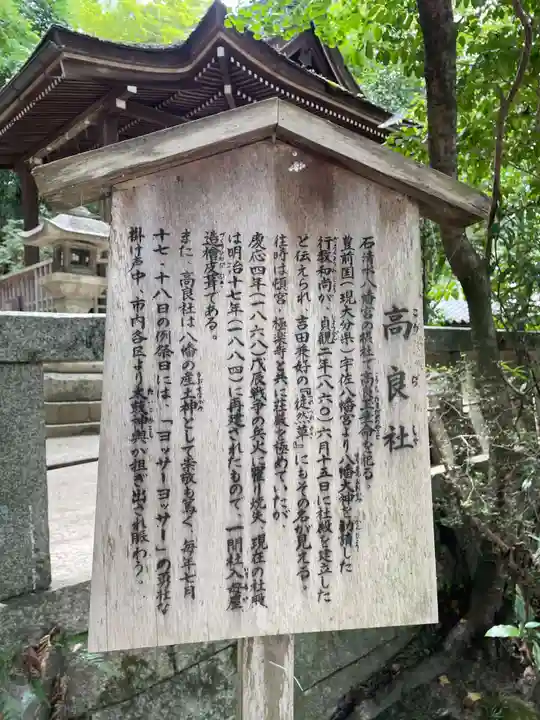 高良社
石清水八幡宮の摂社で高良玉垂命を祀る。
豊前国(現大分県)宇佐八幡宮より八幡大神を勧請した
行教和尚が、貞観二年(八六〇)六月十五日に社殿を建立した
と伝えられ、吉田兼好の『徒然草』にもその名が見える。
往時は頓宮・極楽寺と共に壮厳を極めていたが
慶応四年(一八六八)戊辰戦争の兵火に罹り焼失、現在の社殿
は明治十七年(一八八四)に再建されたもので、一間社入母屋
造檜皮葺である。
また、高良社は八幡の産土神として崇敬も篤く、毎年七月
十七・十八日の例祭日には、「ヨッサーヨッサー」の勇壮な
掛け声中、市内各区より太鼓神輿が担ぎ出され賑わう。